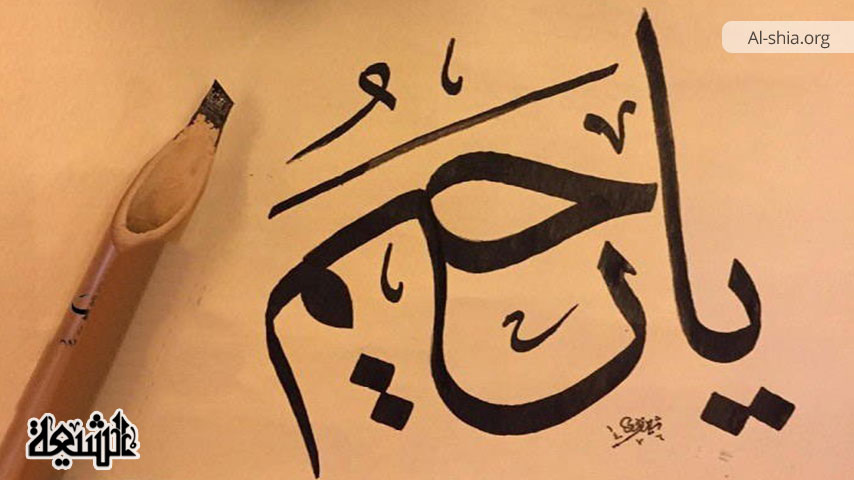 Al-shia.org
يا رحيمُ
الشيعة